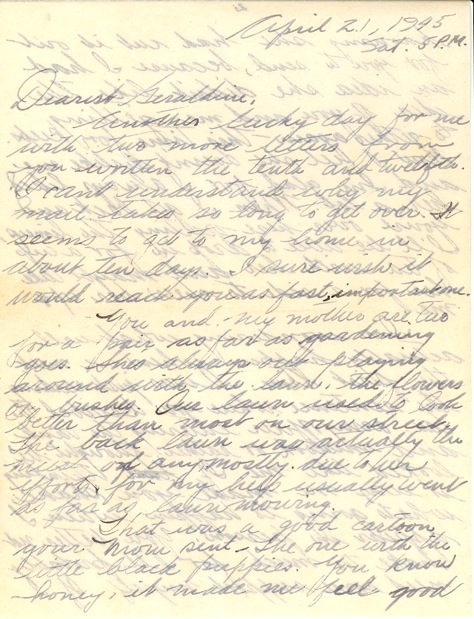 April 21, 1945
Sat. 5 P.M.
Dearest Geraldine,
Another lucky day for me
with two more letters from
you written the tenth and twelfth.
I can't understand why my
mail takes so long to get over. It
seems to get to my home in
about ten days. I sure wish it
would reach you as fast,
You and my mother are two
for a pair as far as gardening
goes. She's always out playing
around with the lawn, the flowers
or bushes. Our lawn used to look
better than most on our street.
The back lawn was actually the
of any mostly due to her
efforts, for my help usually went
as far as lawnmowing.
That was a good cartoon
your Mom sent - the one with the
little black puppies. You know
honey, it made me feel good